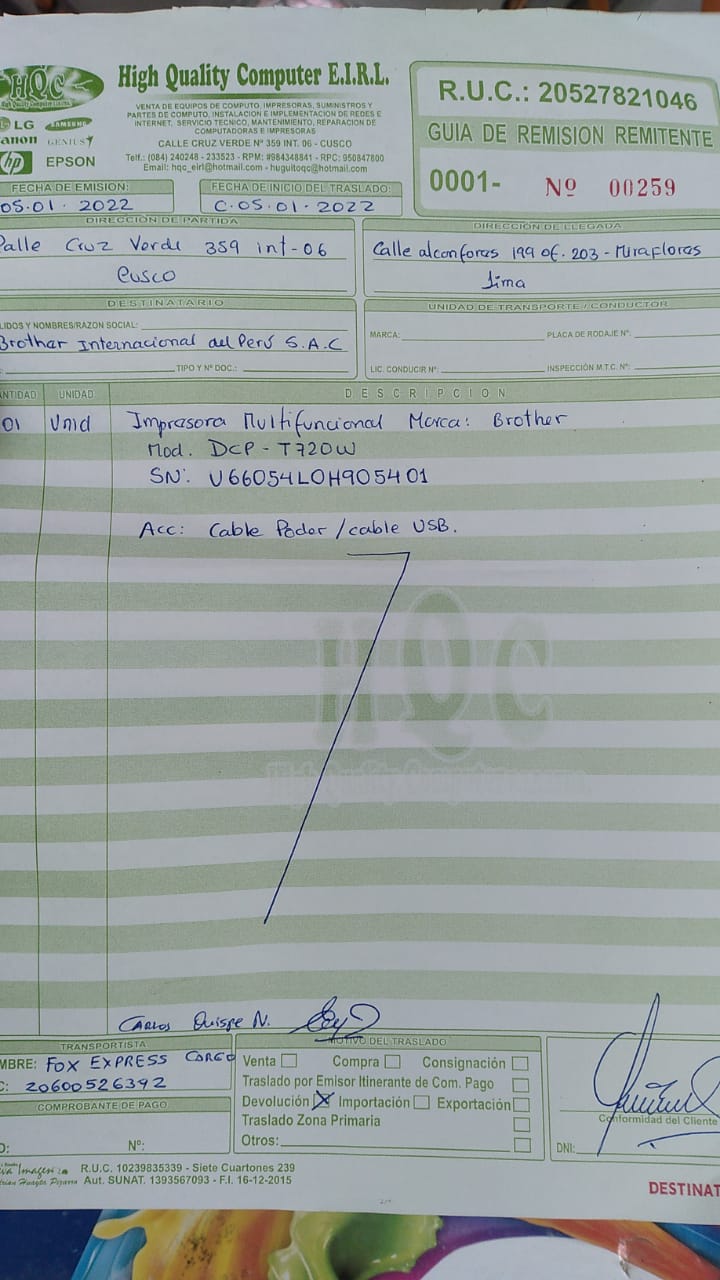 HQC
High Quality Computer E.I.R.L.
LG SAMSUNG
GENIUS
hp EPSON
High Quality Computer E.I.R.L.
VENTA DE EQUIPOS DE COMPUTO, IMPRESORAS, SUMINISTROS Y
PARTES DE COMPUTO, INSTALACION E IMPLEMENTACION DE REDES E
INTERNET, SERVICIO TECNICO, MANTENIMIENTO, REPARACION DE
COMPUTADORAS E IMPRESORAS
CALLE CRUZ VERDE Nº 359 INT. 06 - CUSCO
Telf.: (084) 240248 - 233523 - RPM: #984348841 - RPC: 950847800
Email: hqc_eirl@hotmail.com - huguitoqc@hotmail.com
R.U.C.: 20527821046
GUIA DE REMISION REMITENTE
0001- Nº 00259
FECHA DE EMISIÓN:
05.01.2022
FECHA DE INICIO DEL TRASLADO:
C.05.01.2022
DIRECCIÓN DE PARTIDA
Calle Cruz Verde 359 int-06
Cusco
DIRECCIÓN DE LLEGADA
Calle alconfores 199 of. 203 - Miraflores
Lima
DESTINATARIO
LIDOS Y NOMBRES/RAZON SOCIAL:
Brother Internacional del Perú S.A.C
TIPO Y Nº DOC.:
UNIDAD DE TRANSPORTE / CONDUCTOR
MARCA: PLACA DE RODAJE Nº:
LIC. CONDUCIR Nº: INSPECCIÓN M.T.C. Nº:
ANTIDAD UNIDAD DESCRIPCION
01 Unid Impresora Multifuncional Marca: Brother
Mod. DCP-T720W
SN: U66054L0H905401
Acc: Cable Poder / cable USB.
HQC
Carlos Quispe N.
TRANSPORTISTA
MBRE: FOX EXPRESS CARGO
C: 20600526392
COMPROBANTE DE PAGO
O: Nº:
MOTIVO DEL TRASLADO
Venta Compra Consignación
Traslado por Emisor Itinerante de Com. Pago
Devolución X Importación Exportación
Traslado Zona Primaria
Otros:
Conformidad del Cliente
DNI:
R.U.C. 10239835339 - Siete Cuartones 239
Aut. SUNAT. 1393567093 - F.I. 16-12-2015
DESTINAT